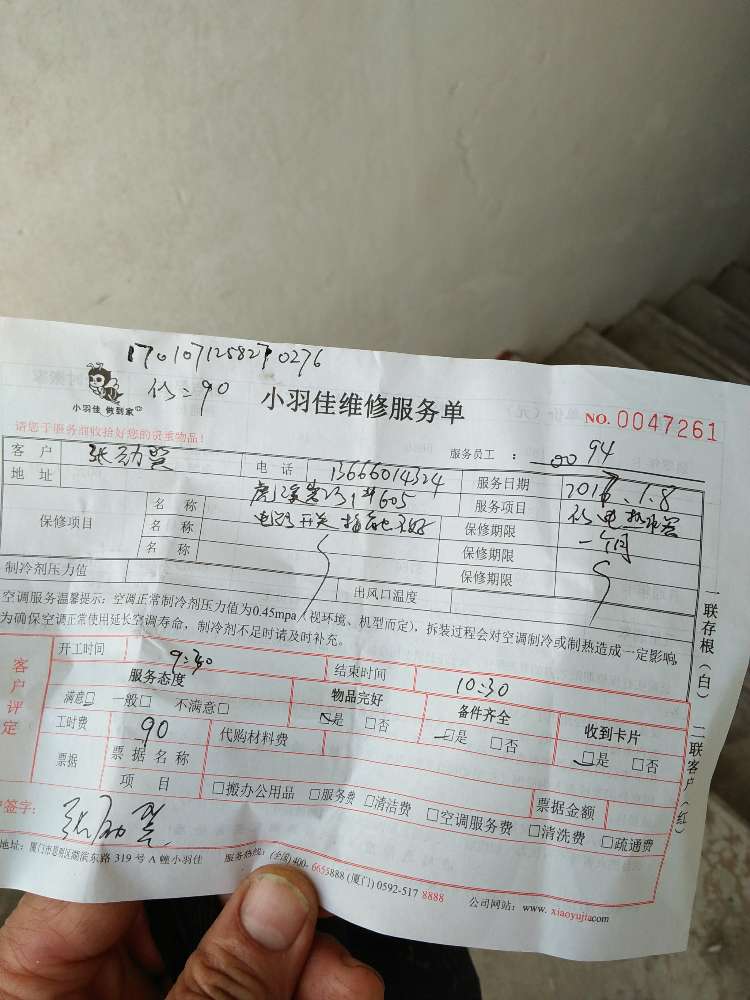 170107125827 0276
修=90
小羽佳 做到家
小羽佳维修服务单
NO. 0047261
请您于服务前收拾好您的贵重物品!
服务员工 : 0094
客 户 电 话 13666014324 服务日期
地 址 605 服务项目 修电热水器
保修项目 名 称 电路开关 保修期限 一个月
名 称 保修期限
名 称 保修期限
制冷剂压力值 出风口温度
空调服务温馨提示: 空调正常制冷剂压力值为0.45mpa(视环境、机型而定),拆装过程会对空调制冷或制热造成一定影响,
为确保空调正常使用延长空调寿命,制冷剂不足时请及时补充。
客户评定
开工时间 9:30 结束时间 10:30
服务态度 物品完好 备件齐全 收到卡片
满意□ 一般□ 不满意□ □是 □否 □是 □否 □是 □否
工时费 90 代购材料费
票据 票 据 名 称 票据金额
项 目 □搬办公用品 □服务费 □清洁费 □空调服务费 □清洗费 □疏通费
户签字:
地址: 厦门市思明区湖滨东路 319 号 A 幢小羽佳 服务热线: (全国) 400-6653888 (厦门) 0592-517 8888 公司网站: www. xiaoyujia.com
一联存根(白) 二联客户(红)